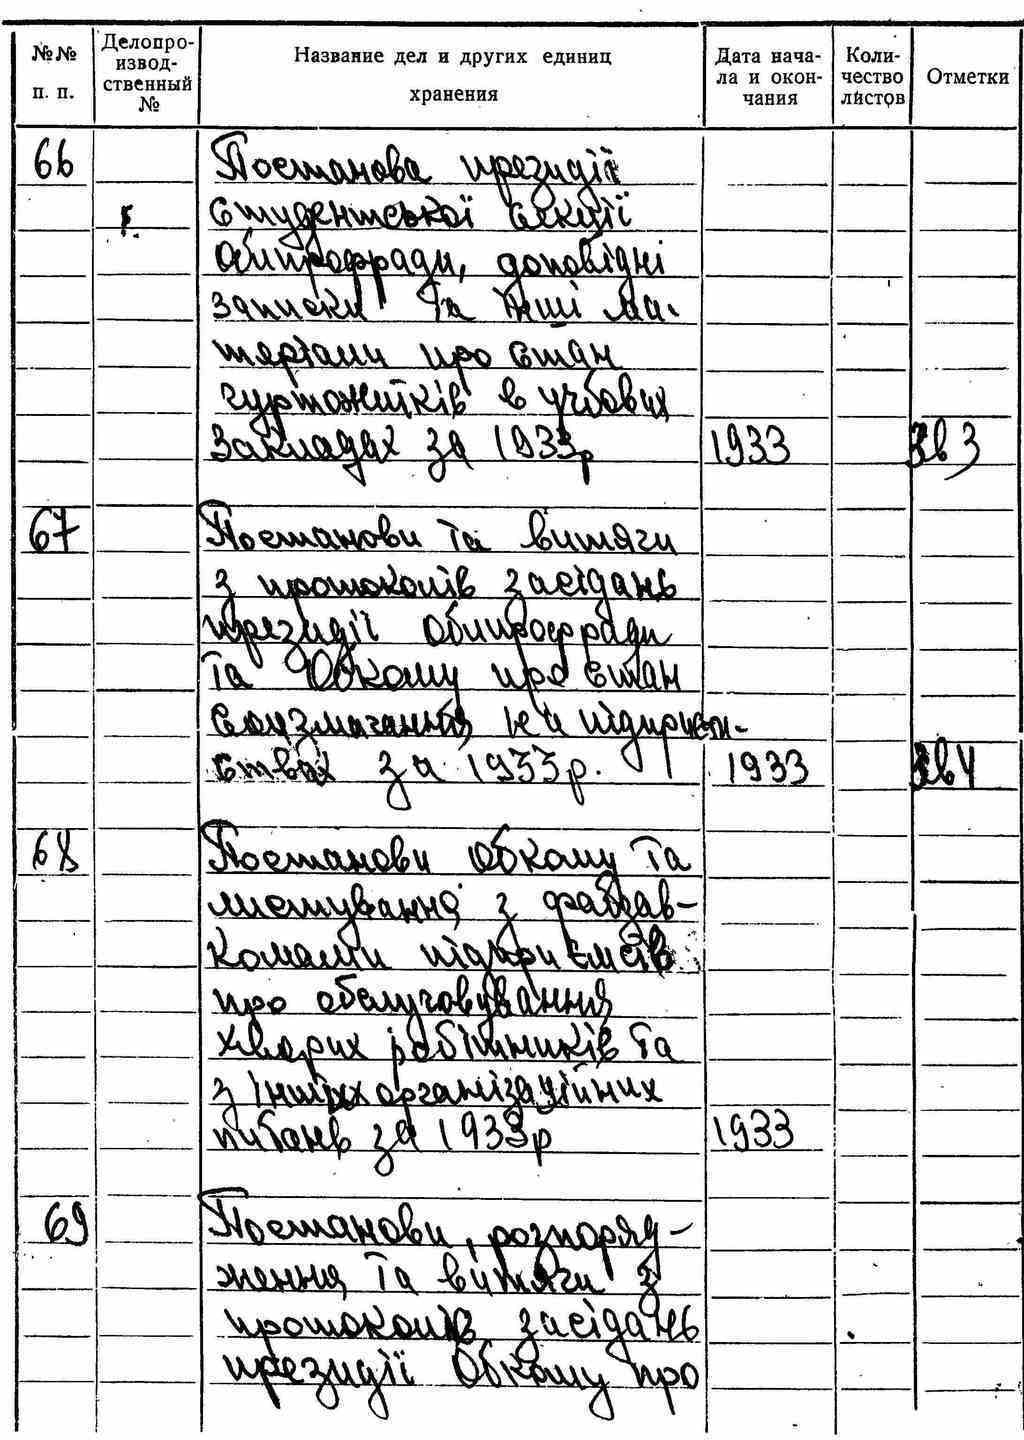 №№ п. п.
Делопро-
извод-
ственный
№
Название дел и других единиц
хранения
Дата нача-
ла и окон-
чания
Коли-
чество
листов
Отметки
66 Постанова президії
студентської секції
Облпрофради, доповідні
записки та інші ма-
теріали про стан
гуртожитків в учбових
закладах за 1933р 1933
67 Постанови та витяги
з протоколів засідань
президії облпрофради
та Обкому про стан
соцзмагання на підприєм-
ствах за 1933р. 1933
68 Постанови Обкому та
листування з фабзав-
комами підприємств
про обслуговування
хворих робітників та
з інших організаційних
питань за 1933р 1933
69 Постанови, розпоряд-
ження та витяги з
протоколів засідань
президії Обкому про